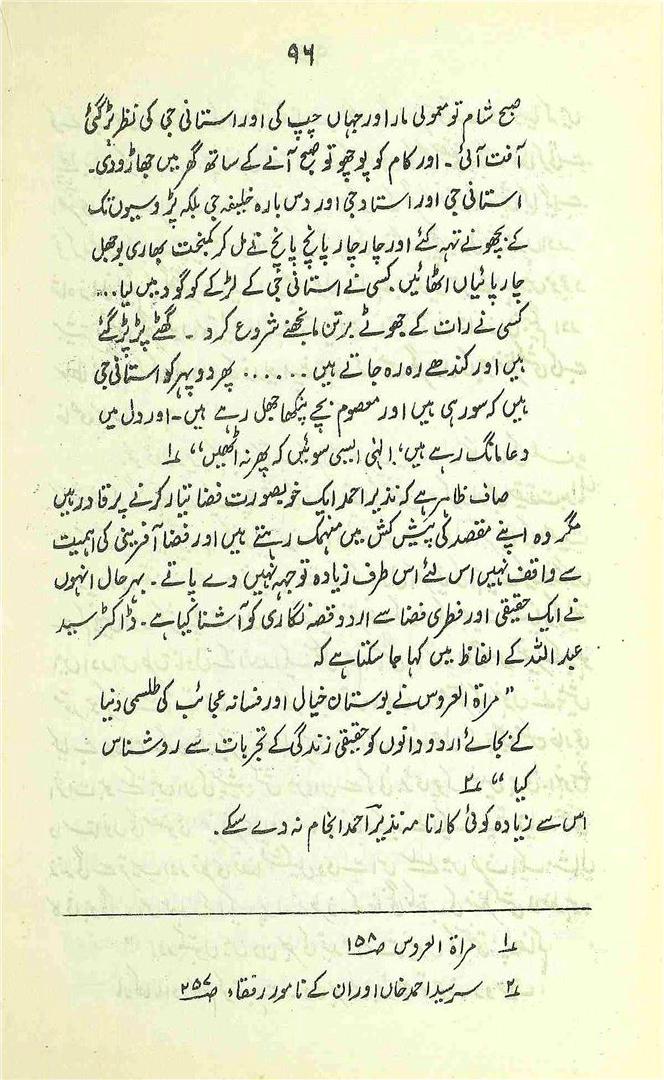 ۹۶
صبح شام تو معمولی مار اور جہاں چپ کی اور استانی جی کی نظر پڑ گئی
آفت آئی ۔ اور کام کو پوچھو تو صبح آنے کے ساتھ گھر میں جھاڑو دی۔
استانی جی اور استاد جی اور دس بارہ خلیفہ جی بلکہ پڑوسیوں تک
کے بچھونے تہہ کئے اور چار چار پانچ پانچ نے مل کر کمبخت بھاری بوجھل
چارپائیاں اٹھائیں۔ کسی نے استانی جی کے لڑکے کو گود میں لیا...
کسی نے رات کے جھوٹے برتن مانجھنے شروع کرد ۔ گھٹے پڑ پڑ گئے
ہیں اور کندھے رہ رہ جاتے ہیں ...... پھر دوپہر کو استانی جی
ہیں کہ سو رہی ہیں اور معصوم بچے پنکھا جھل رہے ہیں۔ اور دل میں
دعا مانگ رہے ہیں، الٰہی ایسی سوئیں کہ پھر نہ اٹھیں“ ۱؎
صاف ظاہر ہے کہ نذیر احمد ایک خوبصورت فضا تیار کرنے پر قادر ہیں
مگر وہ اپنے مقصد کی پیش کش میں منہمک رہتے ہیں اور فضا آفرینی کی اہمیت
سے واقف نہیں اس لئے اس طرف زیادہ توجہہ نہیں دے پاتے ۔ بہرحال انہوں
نے ایک حقیقی اور فطری فضا سے اردو قصہ نگاری کو آشنا کیا ہے ۔ ڈاکٹر سید
عبد اللہ کے الفاظ میں کہا جا سکتا ہے کہ
”مراۃ العروس نے بوستان خیال اور فسانہ عجائب کی طلسمی دنیا
کے بجائے اردو دانوں کو حقیقی زندگی کے تجربات سے روشناس
کیا“ ۲؎
اس سے زیادہ کوئی کارنامہ نذیر احمد انجام نہ دے سکے۔
۱؎ مراۃ العروس ص۱۵۸
۲؎ سرسید احمد خاں اور ان کے نامور رفقاء ص۲۵۷